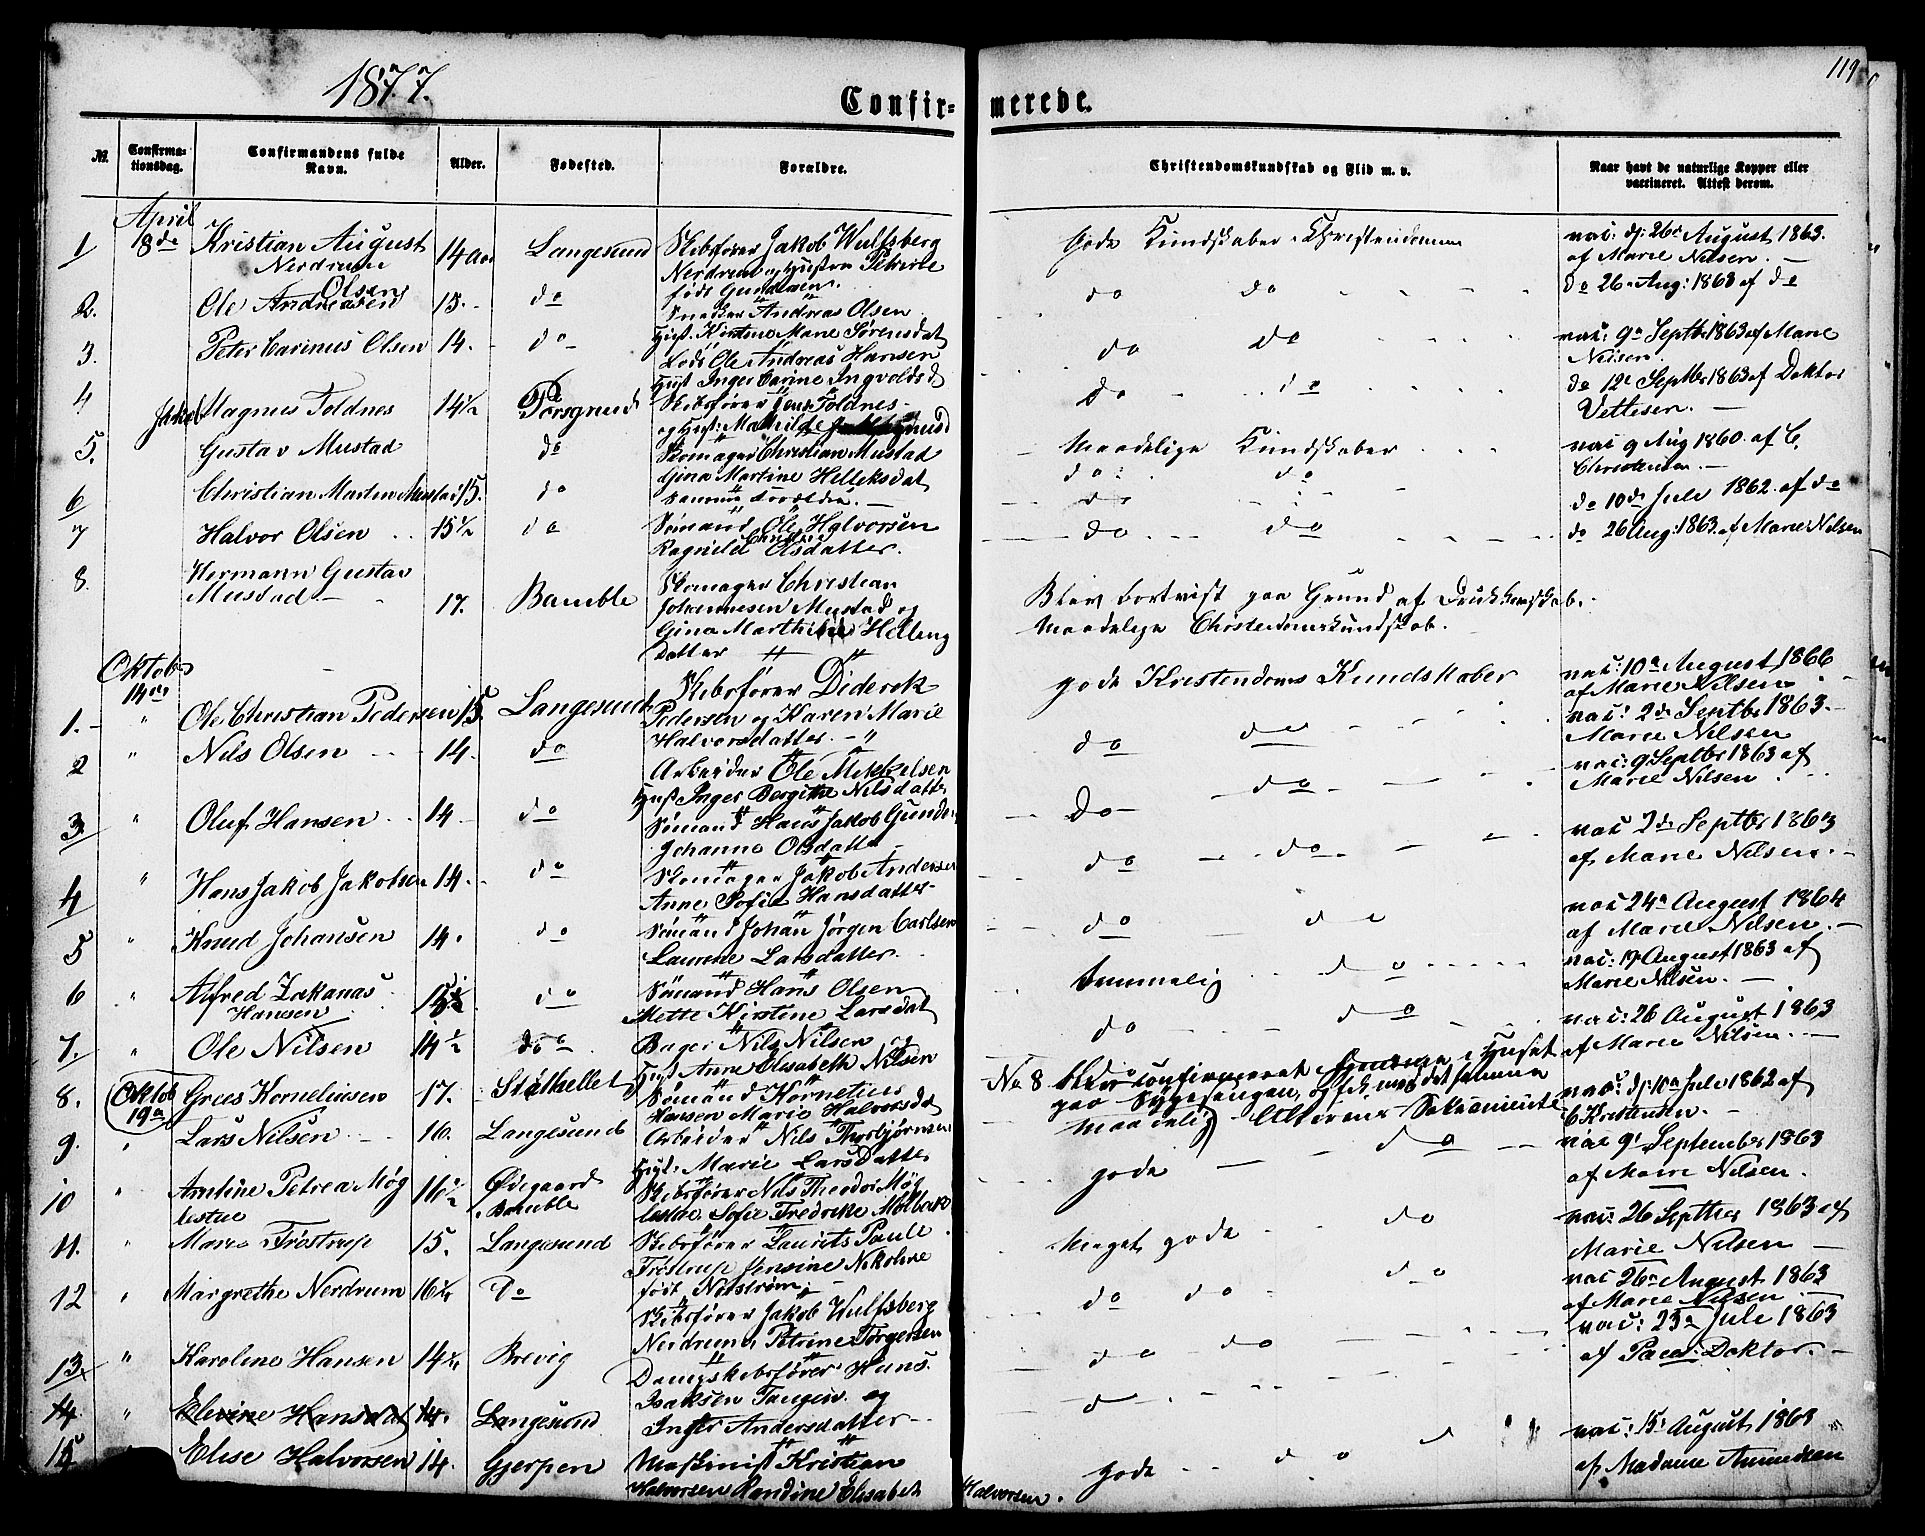 1877.
119
Confir-
merede.
№.
Confirma-
tionsdag.
Confirmandens fulde
Navn.
Alder.
Fødested.
Forældre.
Christendomskundskab og Flid m. v.
Naar havt de naturlige Kopper eller
vaccineret. Attest derom.
April
1 8de Kristian August 14 Langesund Skibsfører Jakob Wulfsberg gode Kundskaber Christendommen vac: d: 26 August 1863.
Nerdrum Nerdrum og Hustru Petrine af Marie Nilsen.
Olsen født
2. Ole Andreasen 15. do Andreas Olsen do do do 26 Aug: 1863 af do
3. Peter Carinus Olsen 14. do Hust. Kirstine Marie Sørensdat do do vac: 9 Septbr 1863 af Marie
Lods Ole Andreas Hansen Nilsen.
Hust Inger Carine Ingvolds d
4 Jakob Magnus Toldnes 14½ Porsgrund Skibsfører Toldnes do do do 12 Septbr 1863 af Doktor
og Hust: Mathilde Vettesen.
5. Gustav Mustad do Skomager Christian Mustad Maadelige Kundskaber vac 9 Aug 1860. af C.
Gina Martine Helleksdat do do Christensen.
6 Christian Marten Mustad 15. do Samme Forældre. do do 10de Juli 1862. af do
7 Halvor Olsen 15½ do Sømand Ole Halvorsen do do do 26 Aug: 1863 af Marie Nilsen
Ragnild Olsdatter.
8. Hermann Gustav Skomager Christian
Mustad 17. Bamble Johannesen Mustad og Blev bortvist paa Grund af Drukkenskab.
Gina Marthine Helleng Maadelige Christendomskundskab.
Datter
Oktob
14de
1. Ole Christian Pedersen 15. Langesund Skibsfører Diderek gode Kristendoms Kundskaber vac: 10 August 1866
Pedersen og Karen Marie af Marie Nilsen
Halvorsdatter
2 Nils Olsen 14. do Arbeider Ole Mikkelsen do do vac: 2de Septbr 1863.
Hust Inger Bergithe Nilsdatter Marie Nilsen
3. Oluf Hansen 14 do Sømand Hans Jakob Gunder Do do vac: 9 Septbr 1863 af
Johanne Olsdatter Marie Nilsen
4 Hans Jakob Jakobsen 14. do Skomager Jakob Andersen do do vac 2de Septbr 1863
Anne Sofie Hansdatter af Marie Nilsen.
5 Knud Johansen 14. do Sømand Johan Jørgen Carlsen do do vac 24 August 1864
Laurene Larsdatter. af Marie Nilsen.
6 Alfred Zakanas do Sømand Hans Olsen Temmelig do vac: 19 August 1863 af
Hansen Mette Kirstine Larsdat Marie Nilsen.
7. Ole Nilsen 14½ do Bager Nils Nilsen og do do vac: 26 August 1863
Hust Anne Elisabeth Nilsen af Marie Nilsen.
8. Oktob Grees Kornelinsen 17. Stathellet Sømand Kornelius No 8 blev confirmeret hjemme i Huset vac: d: 10 Julie 1862 af
19 Hansen Marie Halvorsdat paa Sygesengen, og fik med det samme C Kristensen.
9. Lars Nilsen 16. Langesund Arbeider Nils Thorbjørnsen maadelig Alterens Sakramente vac 9 September 1863
Hust: Marie Lars Datter do af Marie Nilsen.
10 Amtine Petrea Møg 16½ Ødegaard Skibsfører Nils Theodor Møg gode do vac: 26 Septber 1863 af
lestue Bamble lestue Sofie Fredrikke Mølbak Marie Nilsen
11. Marie Trøstrup 15. Langesund Skibsfører Laurits Paule Meget gode do vac 26 August 1863
Trøstrup Jensine Nikoline af Marie Nilsen
født Nitstrøm.
12 Margrethe Nerdrum 16¼ Do Skibsfører Jakob Wulfsberg do do do vac: 23 Julie 1863
Nerdrum Petrine Torgersen af Doktor.
13 Karoline Hansen 14¼ Brevig Dampskibsfører Hans do do
Isaksen Tangen og
14. Elevine Hansdat 14. Langesund Inger Andersdatter do vac: 15 August 1863
15 Elise Halvorsen 14. Gjerpen Maskinist Kristian gode do af Madame Amundsen
Halvorsen Randine Elisabet Halvorsen.